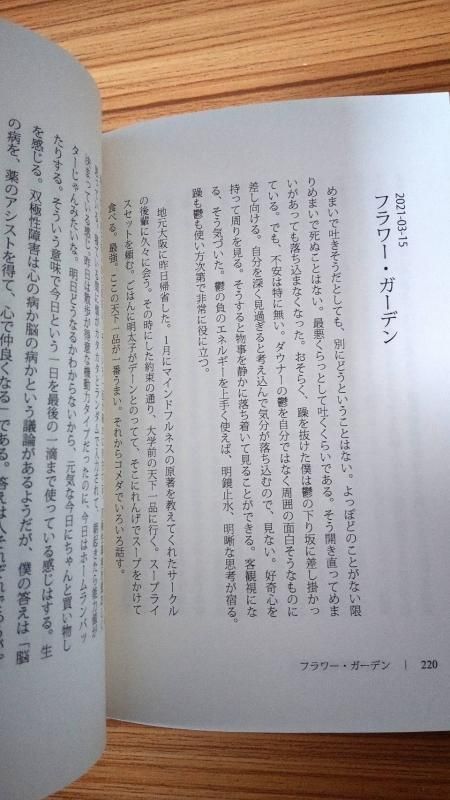 2021-03-15
フラワー・ガーデン
めまいで吐きそうだとしても、別にどうということはない。よっぽどのことがない限
りめまいで死ぬことはない。最悪くらっとして吐くくらいである。そう開き直ってめま
いがあっても落ち込まなくなった。おそらく、躁を抜けた僕は鬱の下り坂に差し掛かっ
ている。でも、不安は特に無い。ダウナーの鬱を自分ではなく周囲の面白そうなものに
差し向ける。自分を深く見過ぎると考え込んで気分が落ち込むので、見ない。好奇心を
持って周りを見る。そうすると物事を静かに落ち着いて見ることができる。客観視にな
る、そう気づいた。鬱の負のエネルギーを上手く使えば、明鏡止水、明晰な思考が宿る。
躁も鬱も使い方次第で非常に役に立つ。
地元大阪に昨日帰省した。1月にマインドフルネスの原著を教えてくれたサークル
の後輩に久々に会う。その時にした約束の通り、大学前の天下一品に行く。スープライ
スセットを頼む。ごはんに明太子がデーンとのってて、そこにれんげでスープをかけて
食べる。最強。ここの天下一品が一番うまい。それからコメダでいろいろ話す。
フラワー・ガーデン | 220
決まっている感じ。昨日は散歩が得意な機動力タイプだったのに、今日はホームランバッ
ターじゃんみたいな。明日どうなるかわからないから、元気な今日にちゃんと買い物し
たりする。そういう意味で今日という一日を最後の一滴まで使っている感じはする。生
を感じる。双極性障害は心の病か脳の病かという議論があるようだが、僕の答えは「脳
の病を、薬のアシストを得て、心で仲良くなる」である。答えは人それぞれ